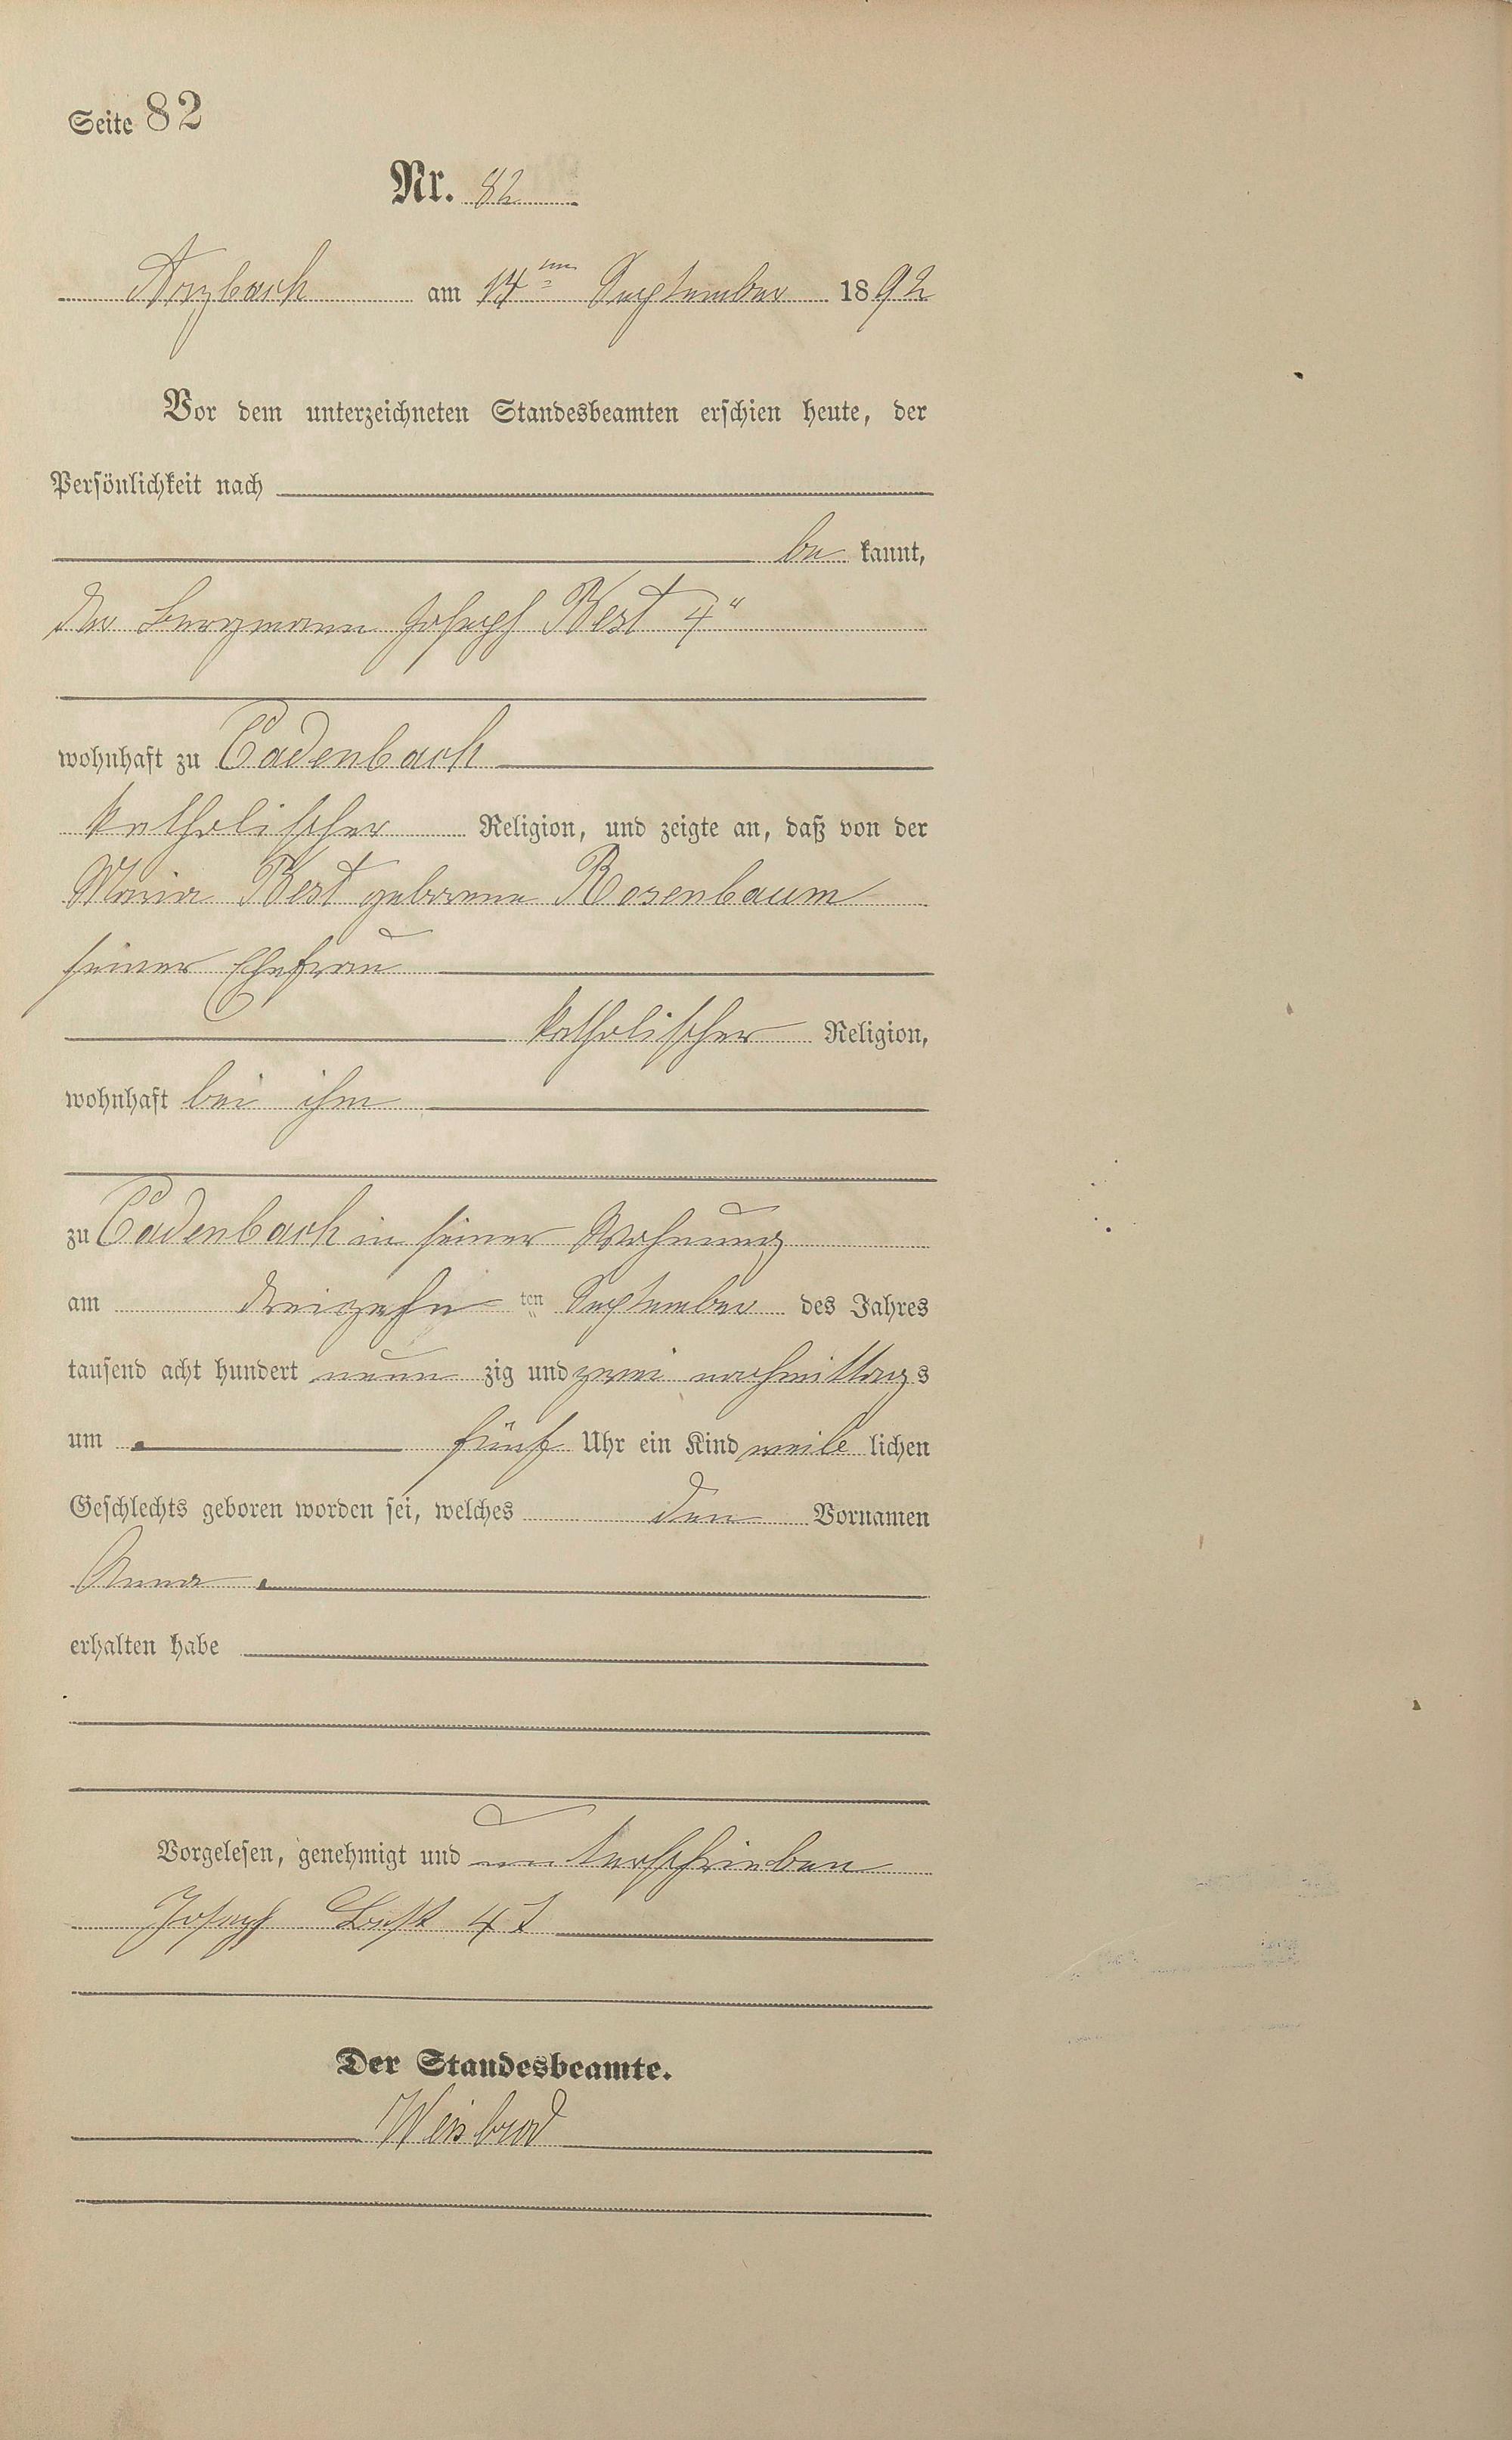 Seite 82
Nr. 82
Arzbach am 14ten September 1892
Vor dem unterzeichneten Standesbeamten erschien heute, der
Persönlichkeit nach
be kannt,
der Bergmann Joseph Best 4"
wohnhaft zu Cadenbach
katholischer Religion, und zeigte an, daß von der
Maria Best geborene Rosenbaum
seiner Ehefrau
katholischer Religion,
wohnhaft bei ihm
zu Cadenbach in seiner Wohnung
am dreizehn ten September des Jahres
tausend acht hundert neun zig und zwei nachmittags
um fünf Uhr ein Kind weib lichen
Geschlechts geboren worden sei, welches den Vornamen
Anna
erhalten habe
Vorgelesen, genehmigt und unterschrieben
Joseph Best 4t
Der Standesbeamte.
Weisbrod